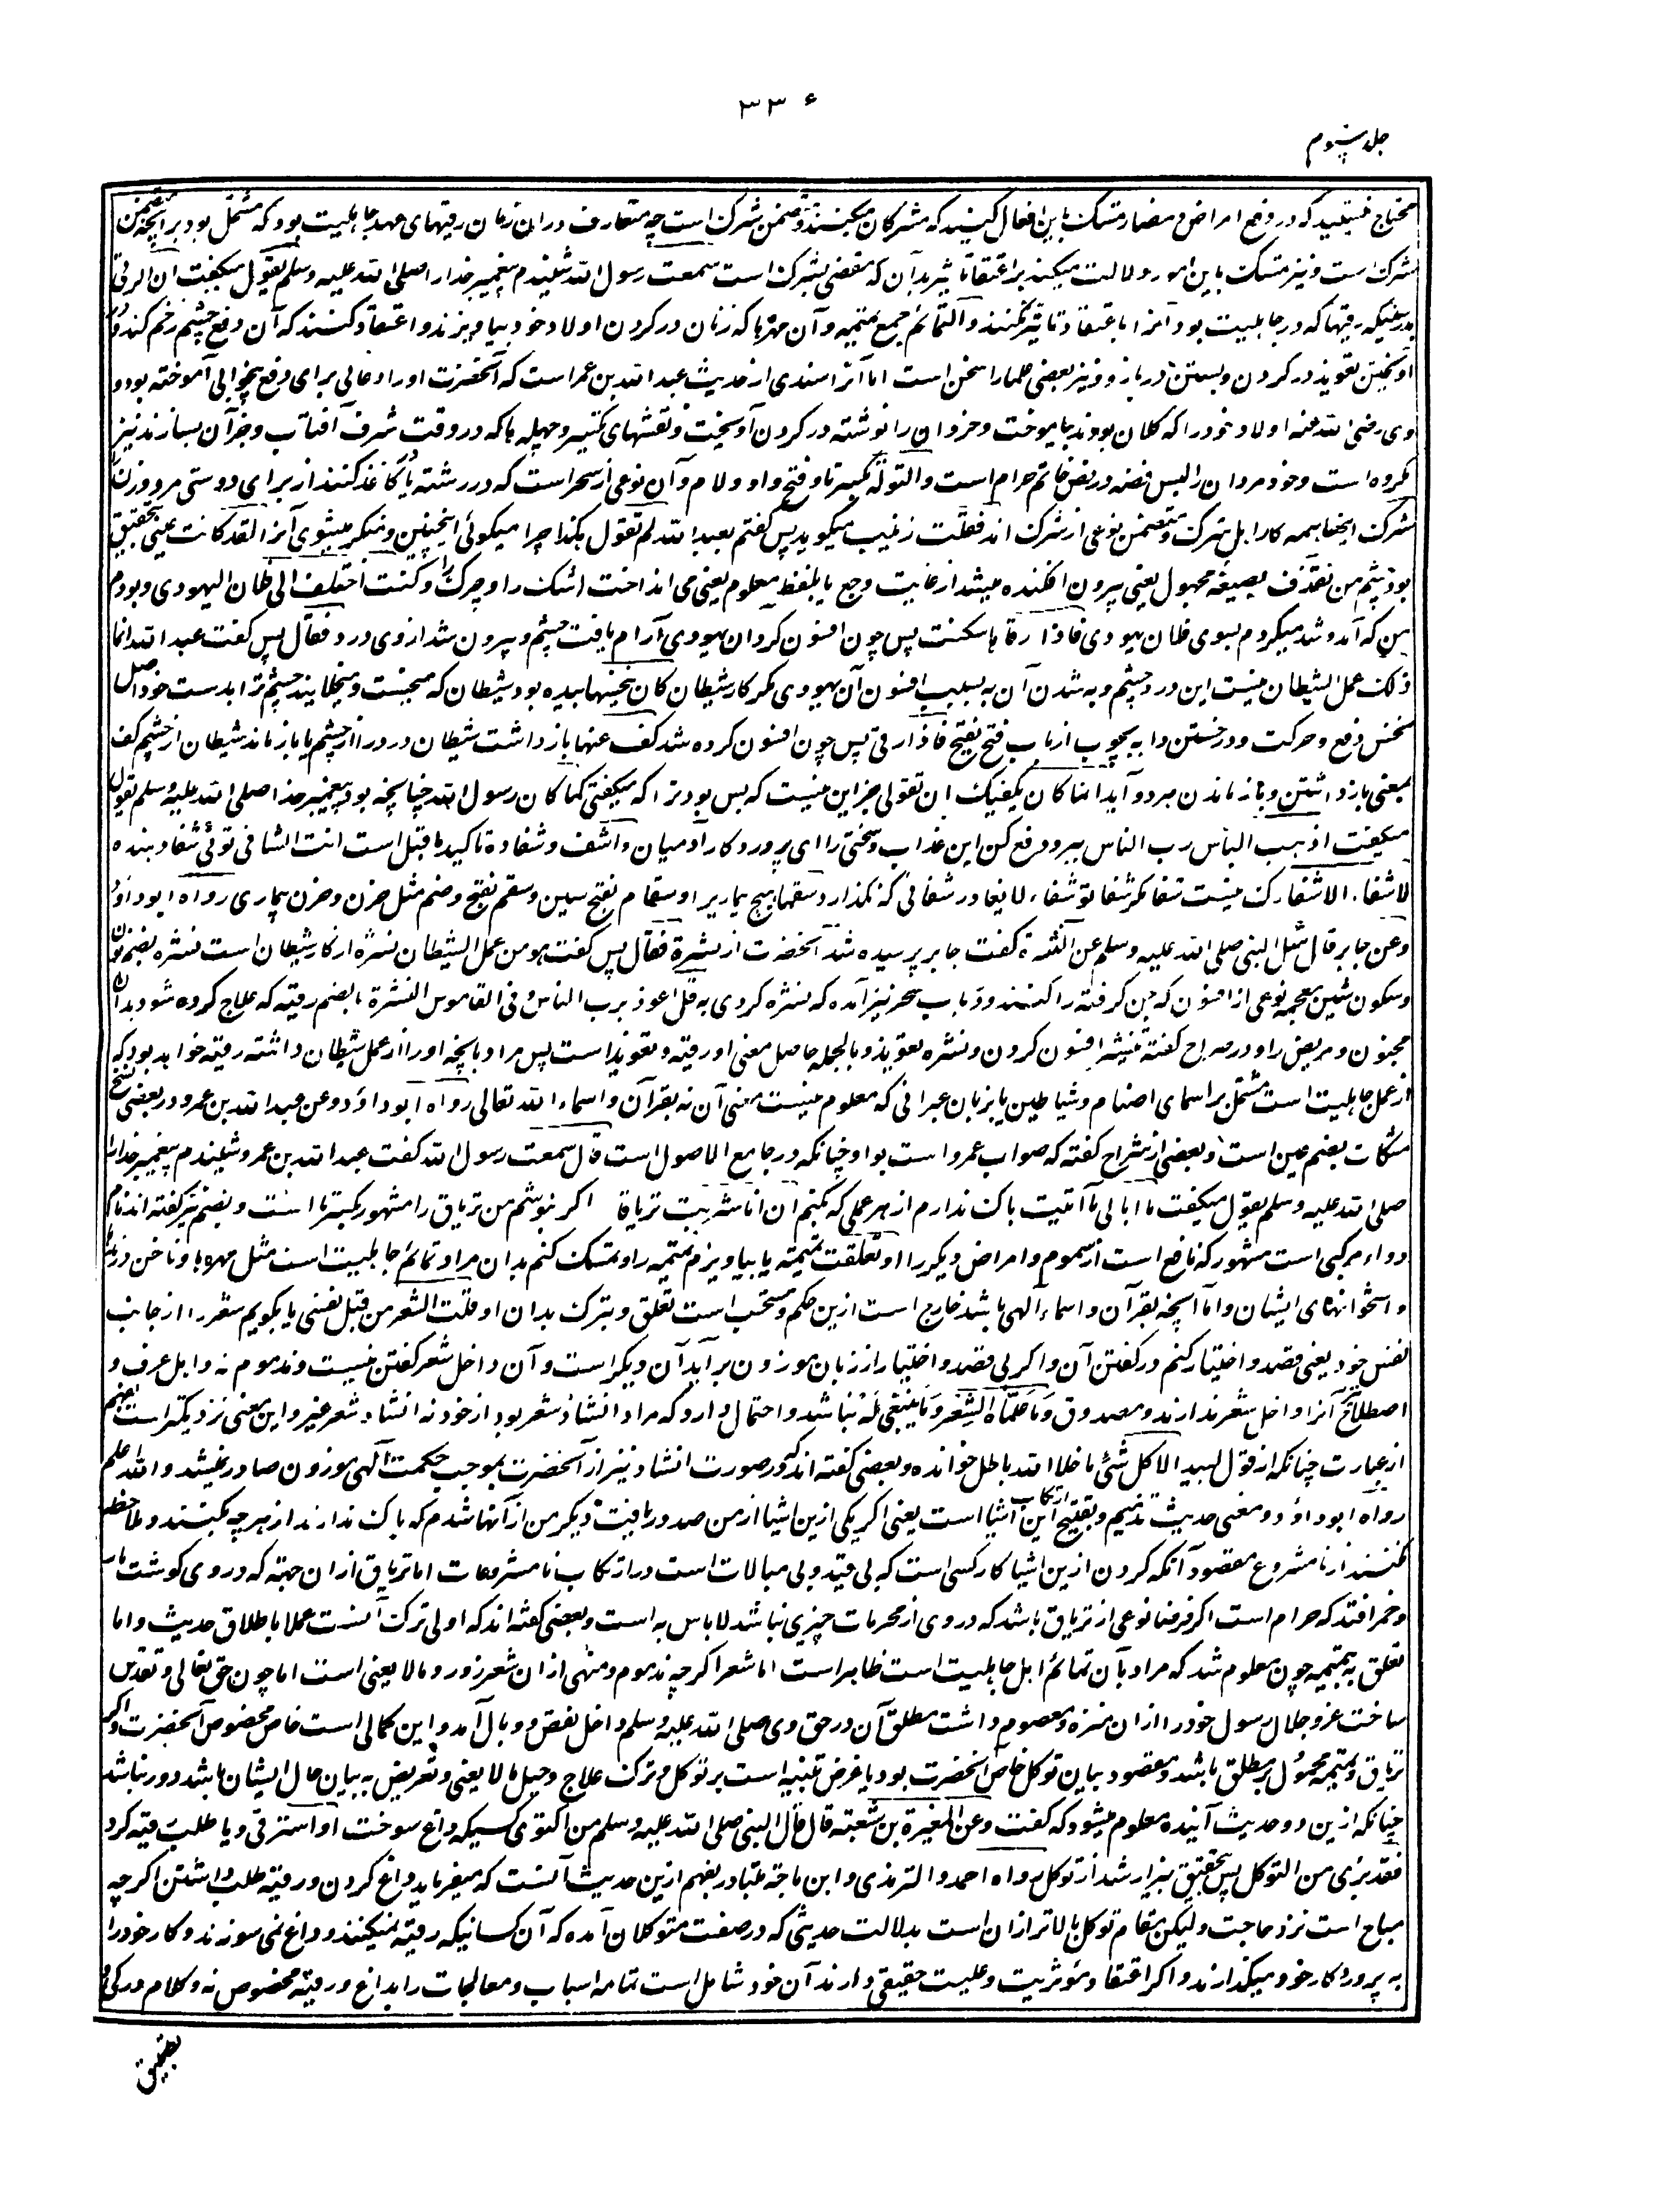 ۶ ۳۳
جلد سوم
محتاج نیستید که در دفع امراض و مضار تمسک باین افعال کنید که مشرکان میکنند و متضمن شرک است چه متعارف در ان زمان رقیتهای عهد جاهلیت بود که مشتمل بود بر آنچه متضمن
شرک است و نیز تمسک باین امور دلالت میکند بر اعتقاد تاثیر بدان که مفضی بشرک است سمعت رسول الله شنیدم پیغمبر خدا را صلی الله علیه وسلم یقول میگفت ان الرقی
بدرستیکه رقیتها که در جاهلیت بود آنرا با عتقاد تاثیر کنند و التمائم جمع تمیمه و آن مهرها که زنان در گردن اولاد خود بیاویزند و اعتقاد کنند که آن دفع چشم زخم کند و در
آویختن تعویذ در گردن و بستن در بازو نیز بعضی علما را سخن است اما آنرا سندی از حدیث عبد الله بن عمر است که آنحضرت اورا دعائی برای دفع بیخوابی آموخته بود و
وی رضی الله عنه اولاد خود را که کلان بودند بیاموخت و خردان را نوشته در گردن آویخت و نقشهای تکسیر و چهله ها که در وقت شرف آفتاب و جز آن بسازند نیز
مکروه است و خود مردان را لبس فضه در غیر خاتم حرام است و التوله بکسر تا و فتح واو و لام و آن نوعی از سحر است که در رشته یا کاغذ کنند از برای دوستی مرد و زن
شرک اینها همه کار اهل شرک و متضمن نوعی از شرک اند فقلت زینب میگوید پس گفتم بعبد الله لم تقول هکذا چرا میگوئی اینچنین و منکر میشوی آنرا لقد کانت عینی بتحقیق
بود چشم من تقذف بصیغه مجهول یعنی بیرون افکنده میشد از غایت وجع یا بلفظ معلوم یعنی می انداخت اشک را و چرک را و کنت اختلف الی فلان الیهودی و بودم
من که آمد و شد میکردم بسوی فلان یهودی فاذا رقاها سکنت پس چون افسون کرد ان یهودی آرام یافت چشم و بیرون شد از وی درد فقال پس گفت عبد الله انما
ذلک عمل الشیطان نیست این درد چشم و به شدن آن به سبب افسون آن یهودی مگر کار شیطان کان ینخسها بیده بود شیطان که میخست و میخلانید چشم ترا بدست خود اصل
نخس دفع و حرکت و درخستن دابه بچوب از باب فتح یفتح فاذا رقی پس چون افسون کرده شد کف عنها باز داشت شیطان درد را از چشم یا باز ماند شیطان از چشم کف
بمعنی باز داشتن و باز ماندن هر دو آید انما کان یکفیک ان تقولی جز این نیست که بس بود ترا که میگفتی کما کان رسول الله چنانچه بود پیغمبر خدا صلی الله علیه وسلم یقول
میگفت اذهب الباس رب الناس ببر و دفع کن این عذاب و سختی را ای پروردگار آدمیان واشف و شفا ده تاکید ما قبل است انت الشافی توئی شفا دهنده
لا شفاء الا شفاءک نیست شفا مگر شفا تو شفاء لا یغادر شفائی که نگذارد سقما هیچ بیماری را و سقام بفتح سین و سقم بفتح و ضم مثل حزن و حزن بیماری رواه ابوداؤد
وعن جابر قال سئل النبی صلی الله علیه وسلم عن النشرة گفت جابر پرسیده شد آنحضرت از نشرة فقال پس گفت هو من عمل الشیطان نشره از کار شیطان است نشره بضم نون
و سکون شین معجمه نوعی از افسون که جن گرفته را کنند و در باب سحر نیز آمده که نشره کردی به قل اعوذ برب الناس و فی القاموس النشرة بالضم رقیه که علاج کرده شود بدان
مجنون و مریض را و در صراح گفته تنشیر افسون کردن و نشره تعویذ و بالجمله حاصل معنی او رقیه و تعویذ است پس مراد بانچه اورا از عمل شیطان داشته رقیه خواهد بود که
از عمل جاهلیت است مشتمل بر اسمای اصنام و شیاطین یا بزبان عبرانی که معلوم نیست معنی آن نه بقرآن و اسماء الله تعالی رواه ابوداؤد وعن عبد الله بن عمر و در بعضی نسخ
مشکات بضم عین است و بعضی از شراح گفته که صواب عمرو است بواو چنانکه در جامع الاصول است قال سمعت رسول الله گفت عبد الله بن عمرو شنیدم پیغمبر خدا را
صلی الله علیه وسلم یقول میگفت ما ابالی ما اتیت باک ندارم از هر عملی که بکنم ان انا شربت تریاقا اگر بنوشم من تریاق را مشهور بکسر تا است و بضم نیز گفته اند نام
دواء مرکبی است مشهور که نافع است از سموم و امراض دیگر را او تعلقت تمیمة یا بیاویزم تمیمه را و تمسک کنم بدان مراد تمائم جاهلیت است مثل مهره ها و ناخن درندها
و استخوانهای ایشان و اما آنچه بقرآن و اسماء الهی باشد خارج است ازین حکم و مستحب است تعلق و تبرک بدان او قلت الشعر من قبل نفسی یا بگویم شعر را از جانب
نفس خود یعنی قصد و اختیار کنم در گفتن آن و اگر بی قصد و اختیار از زبان موزون برآید آن دیگر است و آن داخل شعر گفتن نیست و مذموم نه و اهل عرف و
اصطلاح آنرا داخل شعر ندارند و مصدوق وَمَا عَلَّمْنَاهُ الشِّعْرَ وَمَا یَنْبَغِی لَهُ نباشد و احتمال دارد که مراد انشاء شعر بود از خود نه انشاد شعر غیر و این معنی نزدیکتر است بفهم
از عبارت چنانکه از قول لبید الا کل شئ ما خلا الله باطل خوانده و بعضی گفته اند که در صورت انشاد نیز از آنحضرت بموجب حکمت الهی موزون صادر نمیشد و الله اعلم
رواه ابوداؤد و معنی حدیث تذمیم و تقبیح ارتکاب این اشیا است یعنی اگر یکی ازین اشیا از من صدور یافت دیگر من از آنها شدم که باک ندارند از هر چه بکنند و ملاحظه
نکنند از نامشروع مقصود آنکه کردن ازین اشیا کار کسی است که بی قید و بی مبالات است در ارتکاب نامشروعات اما تریاق ازان جهته که در وی گوشت مار
و خمر افتد که حرام است اگر فرضا نوعی از تریاق باشد که در وی از محرمات چیزی نباشد لاباس به است و بعضی گفته اند که اولی ترک آنست عملا باطلاق حدیث و اما
تعلق به تمیمه چون معلوم شد که مراد بآن تمائم اهل جاهلیت است ظاهر است اما شعرا گرچه مذموم و منهی ازان شعر زور و مالا یعنی است اما چون حق تعالی و تقدس
ساخت عز و جلال رسول خود را ازان منزه و معصوم داشت مطلق آن در حق وی صلی الله علیه وسلم داخل نقص و وبال آمد و این کمالی است خاص مخصوص آنحضرت و اگر
تریاق و تمیمه محمول بر مطلق باشد و مقصود بیان توکل خاص آنحضرت بود یا غرض تنبیه است بر توکل و ترک علاج و حیل مالا یعنی و تعریض به بیان حال ایشان باشد دور نباشد
چنانکه ازین دو حدیث آینده معلوم میشود که گفت وعن المغیرة بن شعبة قال قال النبی صلی الله علیه وسلم من اکتوی کسیکه داغ سوخت او استرقی و یا طلب رقیه کرد
فقد برئ من التوکل پس بتحقیق بیزار شد از توکل رواه احمد و الترمذی و ابن ماجة متبادر بفهم ازین حدیث آنست که میفرماید داغ کردن و رقیه طلب داشتن اگرچه
مباح است نزد حاجت و لیکن مقام توکل بالاتر ازان است بدلالت حدیثی که در صفت متوکلان آمده که آن کسانیکه رقیه نمیکنند و داغ نمی سوزند و کار خود را
به پروردگار خود میگذارند و اگر اعتقاد مؤثریت و علیت حقیقی دارند آن خود شامل است تمامه اسباب و معالجات را بداغ و رقیه مخصوص نه و کلام در کی و
تطبیق